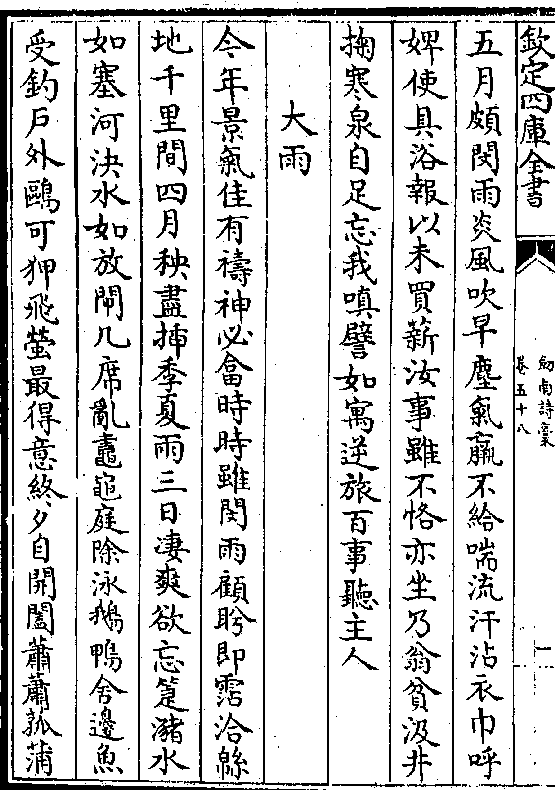 欽定四庫全書
劍南詩稾
卷五十八
一
五月頗閔雨炎風吹旱塵氣羸不給喘流汗沾衣巾呼
婢使具浴報以未買薪汝事雖不恪亦坐乃翁貧汲井
掬寒泉自足忘我嗔譬如寓逆旅百事聽主人
大雨
今年景氣佳有禱神必畣時時雖閔雨顧盻即霑洽緜
地千里間四月秧盡揷季夏雨三日凄爽欲忘箑瀦水
如塞河決水如放閘几席亂鼃黽庭除泳鵝鴨舍邊魚
受釣戶外鷗可狎飛螢最得意終夕自開闔蕭蕭菰蒲